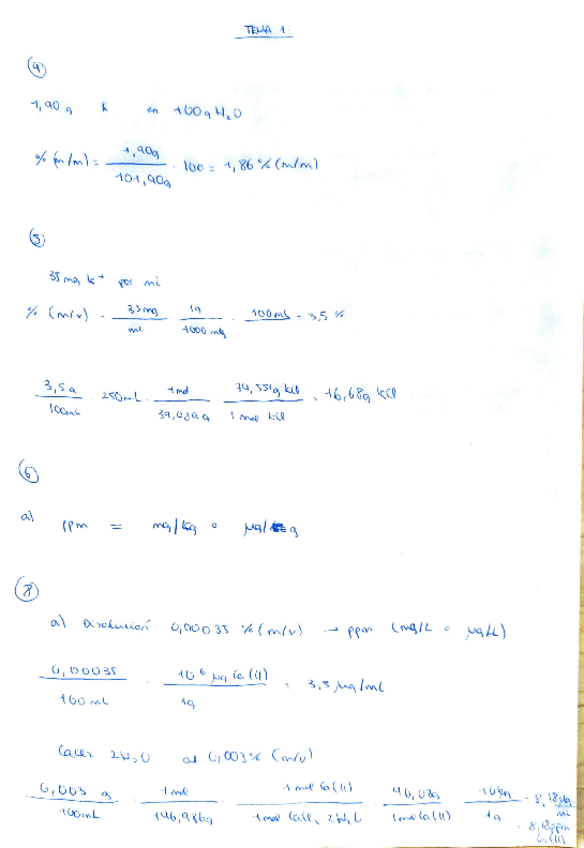 TEMA 1:
4
1,90 g K en 100g H2O
% (m/m) = 1,90g / 101,90g · 100 = 1,86 % (m/m)
5
35 mg K+ por ml
% (m/v) = 35mg / ml · 1g / 1000 mg · 100ml = 3,5 %
3,5g / 100mL · 250mL · 1mol / 39,0989 · 74,551g KCl / 1 mol KCl = 16,68g KCl
6
a) ppm = mg/kg o µg/g
8
a) Disolución 0,00035 % (m/v) → ppm (mg/L o µg/
0,00035 / 100 mL · 10^6 µg Ca(II) / 1g = 3,5 µg/mL
CaCl2 2H2O al 0,003% (m/v)
0,003 g / 100mL · 1 mol / 146,986g · 1 mol Ca(II) / 1mol CaCl2 2H2O · 40,08g / 1mol Ca(II) · / 1g = 8,18 µg/ml
= 8,18ppm
Ca(II)